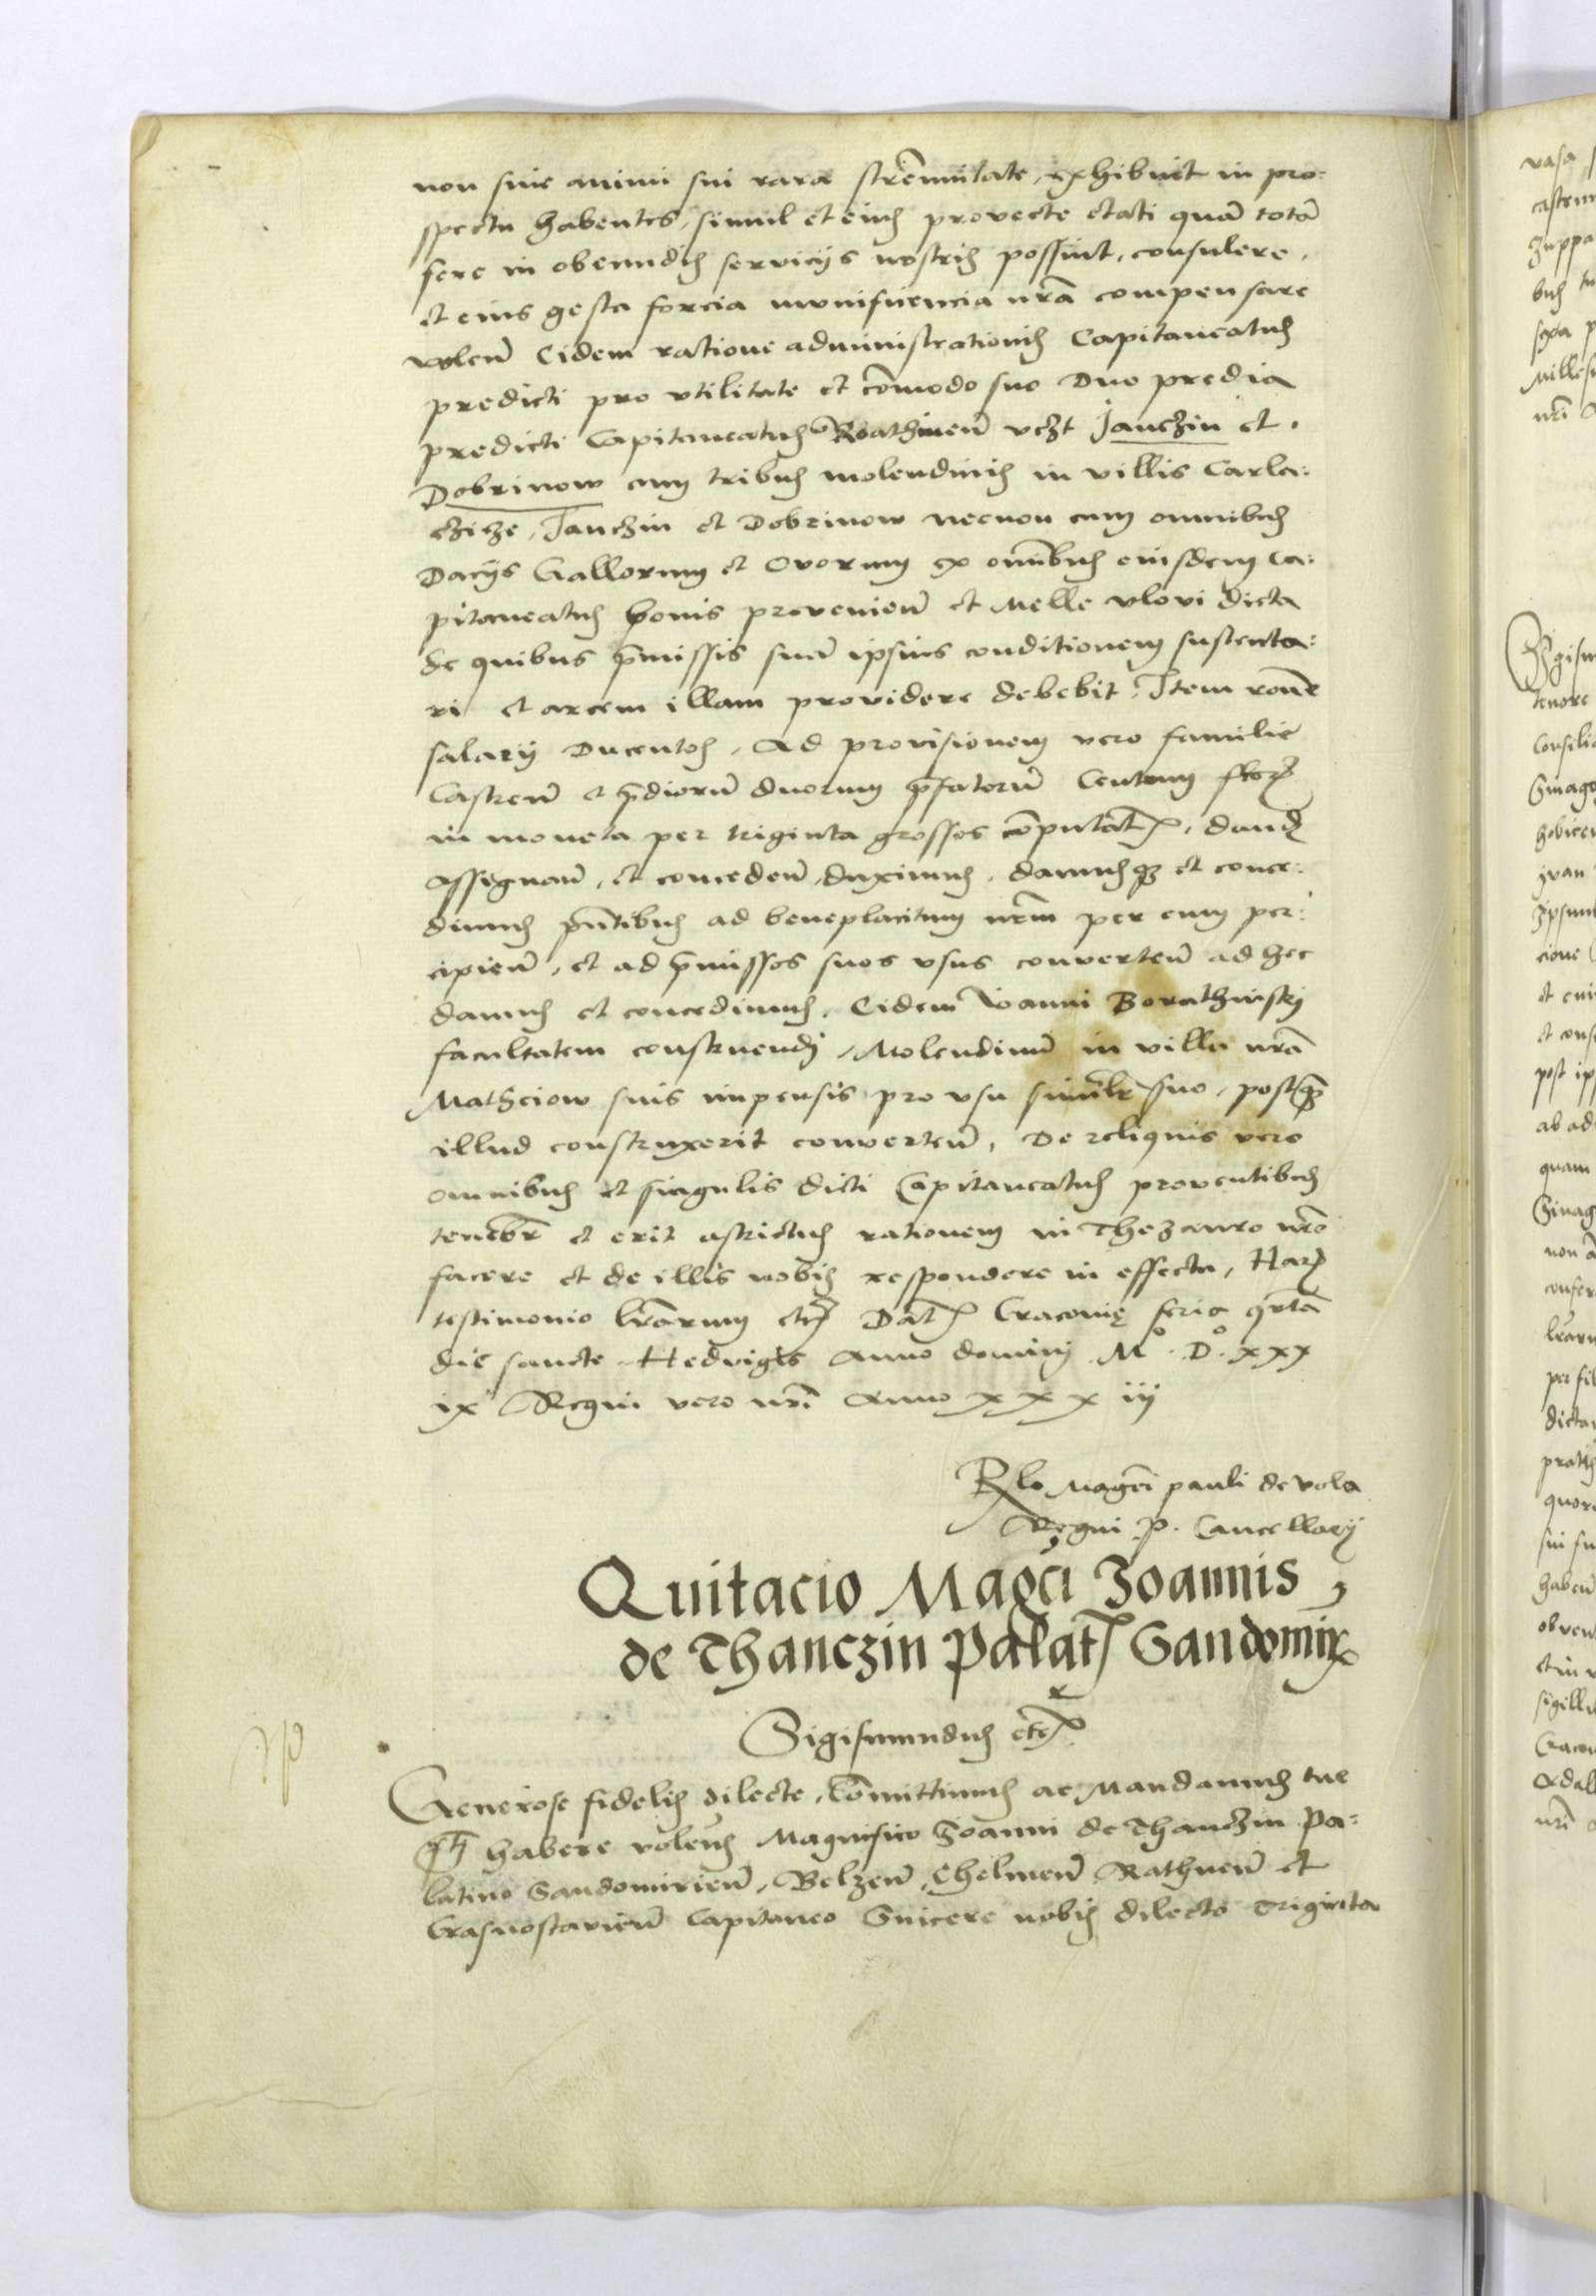 non sine animi sui rara strẽnuitate, exhibuit in pro:
spectu habentes, simul et eius provecte etati quã totã
fere in obeundis serviciis nostris possuit, consulere,
et eius gesta forcia munificencia nrã compensare
volen̄ Eidem ratione administrationis Capitaneatus
predicti pro utilitate et cõmodo suo Duo predia
predicti Capitaneatus Rathnen̄ vczt Janczin et
Dobrinow cum tribus molendinis in villis Carla:
cziche, Janczin et Dobrinow necnon cum omnibus
Daciis Gallorum et Ovorum ex om̃ibus eiusdem Ca:
pitaneatus bonis provenien̄ et Melle ulovi dicta
de quibus p̄missis suã ipsius conditionem sustenta:
ri et arcem illam providere debebit, Item rone
salarii Ducentos, Ad provisionem vero familie
Castren̄ et p̄diorũ duorum p̄fatorũ Centum flor
in moneta per triginta grossos cõputat, dand
assignan̄, et conceden̄, duximus, damusq et conce:
dimus pñtibus ad beneplacitum nrm per eum per:
cipien̄, et ad p̄missos suos usus converten̄ ad hec
damus et concedimus, Eidem Ioanni Borathinskj
facultatem construendj, Molendinũ in villa nrã
Mathciow suis impensis pro usu similr suo, postq̃
illud construxerit converten̄, De reliquis vero
omnibus et singulis dicti Capitaneatus proventibus
tenebr̄ et erit astrictus rationem in Thezauro nro
facere et de illis nobis respondere in effectu, Har
testimonio lrarum etc Dat Cracovię feria qrtã
die sancte Hedvigis Anno dominj M° D° xxx
ix Regni vero nri Anno x x x iij
Rlo Magci pauli de vola
Regni P. Cancellarij
Quitacio Magci Joannis
de Thanczin Palat Sandomir
Sigismundus etc
Generose fidelis dilecte, Cõmittimus ac Mandamus tue
habere volens Magnifico Joanni de Thanczin Pa:
latino Sandomirien̄, Belzen̄, Chelmen̄ Rathnen̄ et
Crasnostavien̄ Capitaneo Sincere nobis dilecto Triginta